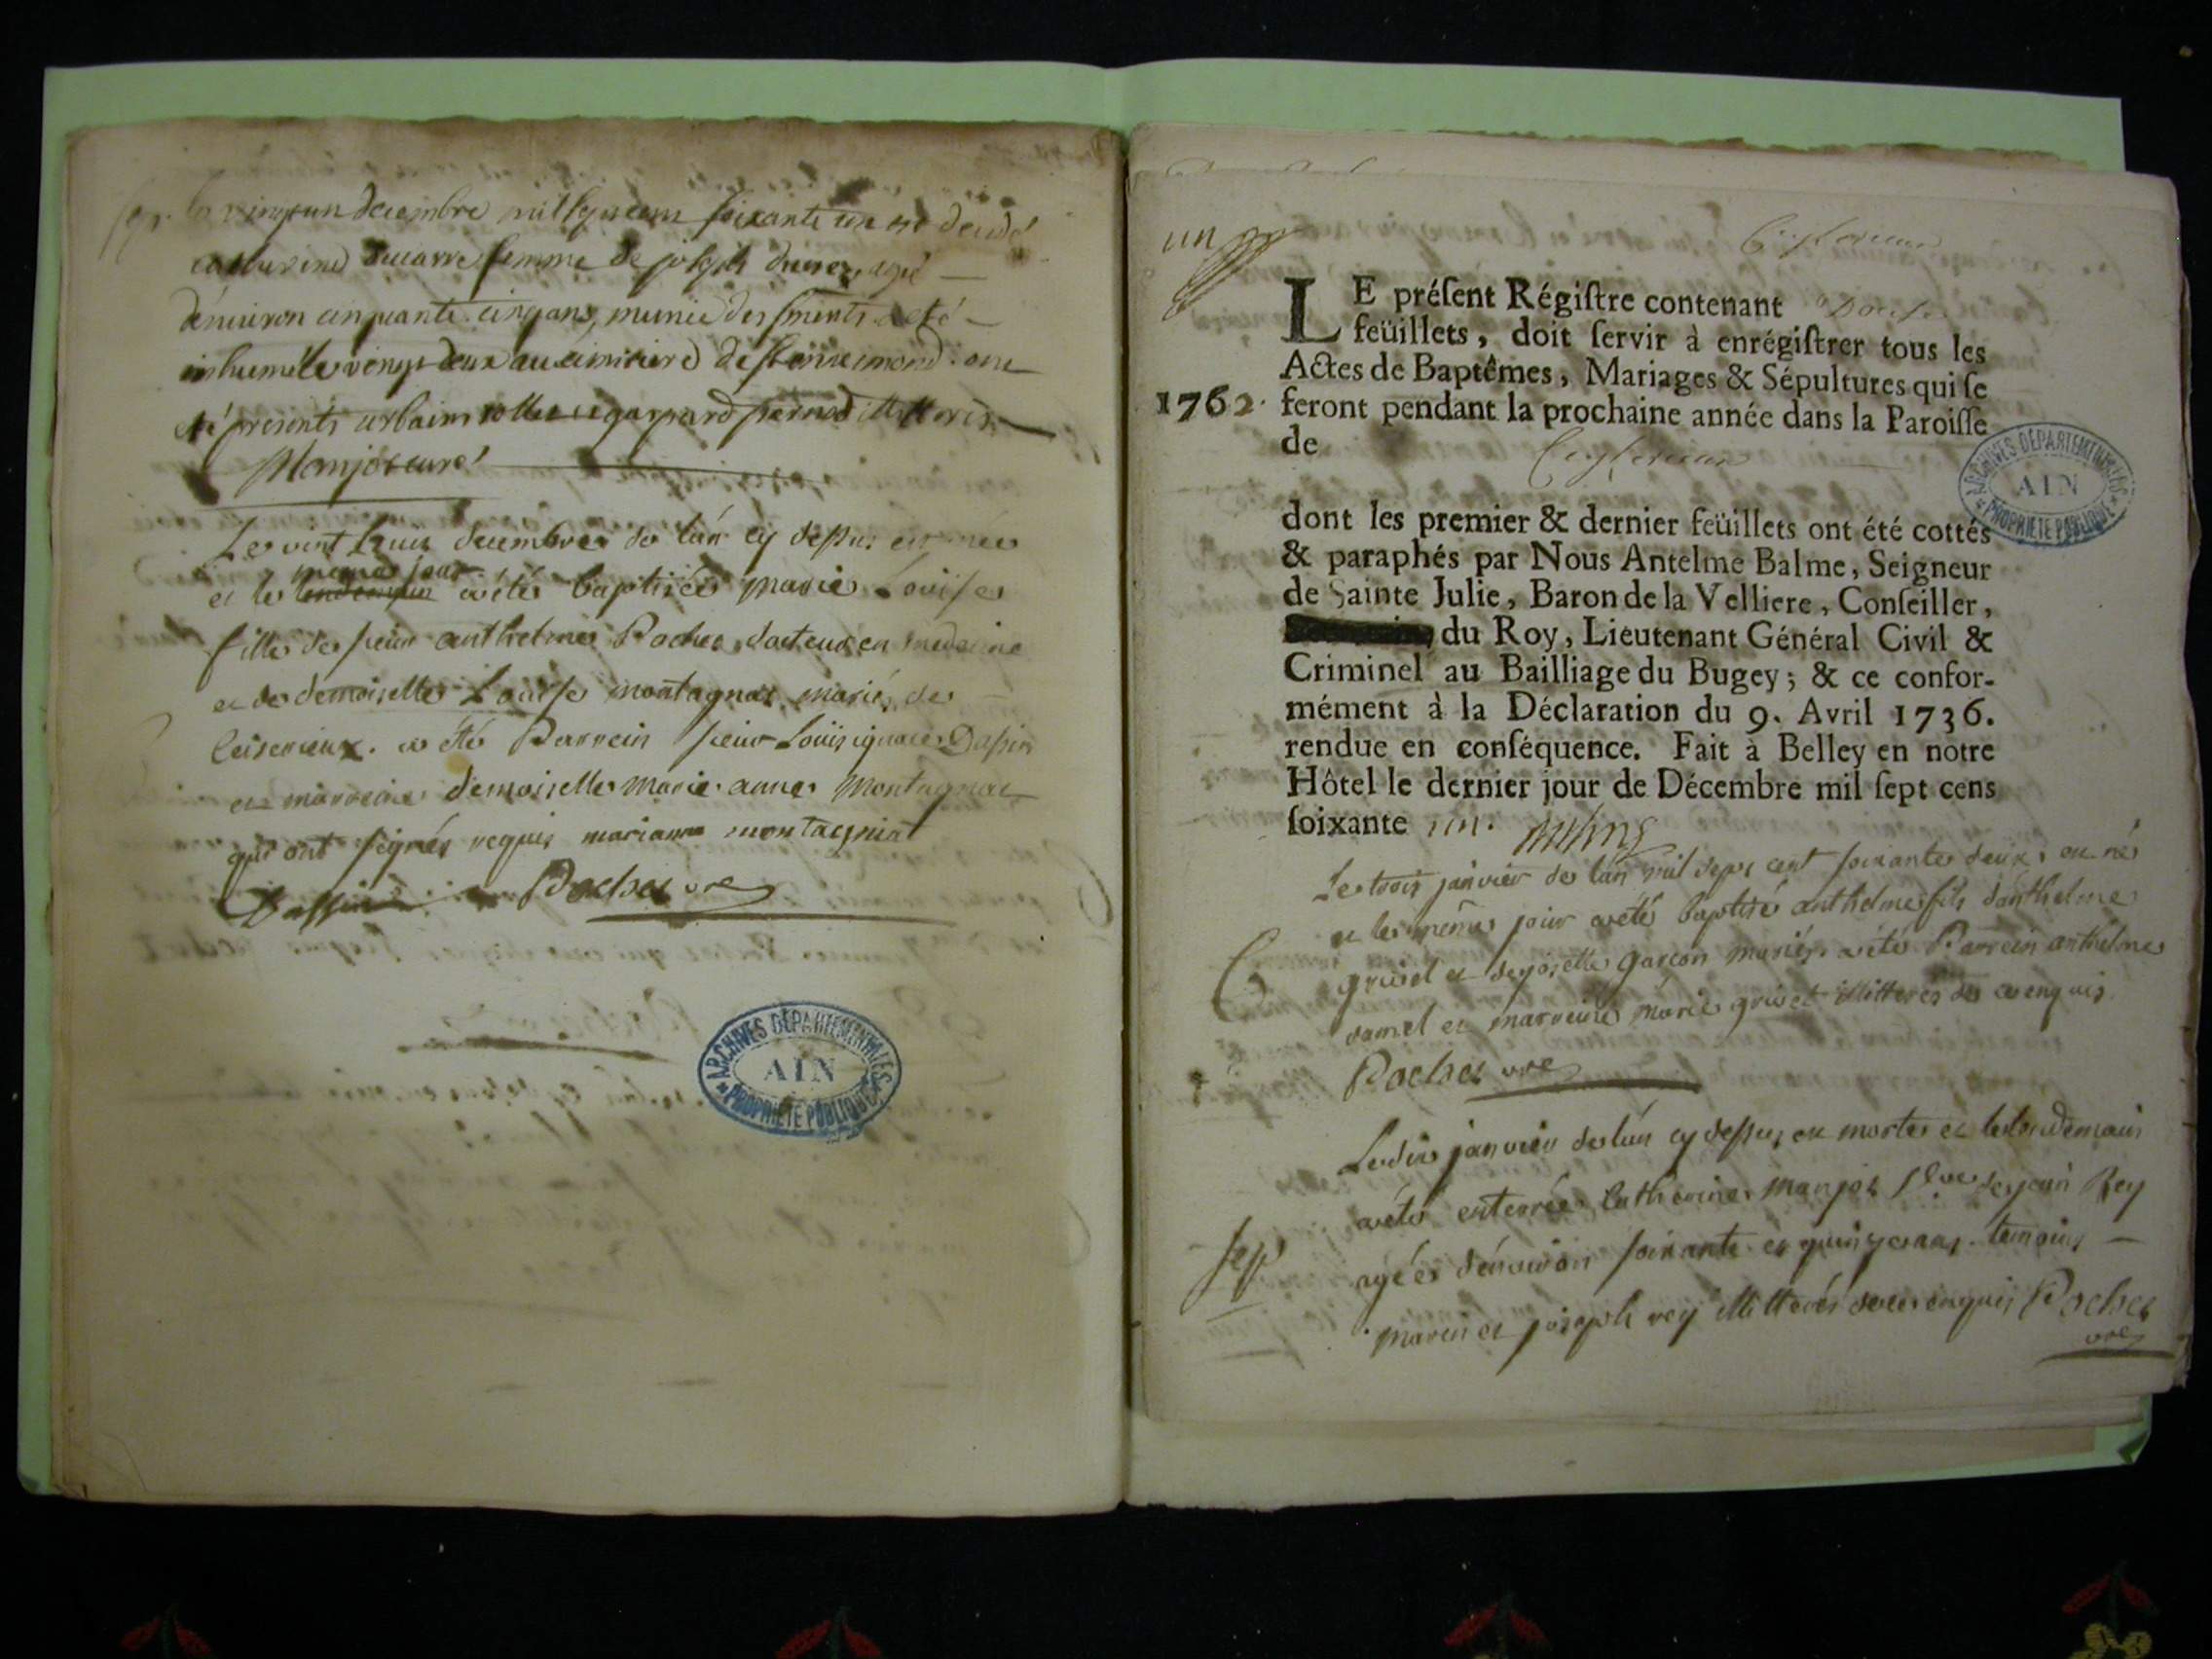 sep. le vingt un decembre mil sept cent soixante un est decedé
catherine ducarre femme de joseph agé
dénuiron cinquante cinq ans, munie des sments a eté
inhumé le vingt deux au cimitiere de ont
eté presents urbain et gaspard illitteres
Manjot curé
Le vint huit decembre de lán cy dessus est née
et le lendemain meme jour a eté baptisée marie Louise
fille de sieur anthelme Rochet docteur en medecine
et de demoiselle Louise montagnat mariés de
Ceiserieux. a été Parrein sieur Loüis ignace Dassin
et marreine demoiselle marie anne Montagnat
qui ont signés requis marianne montagniat
Dassin Rochet vre
un
Ceyserieux
LE préſent Régiſtre contenant Douse
feüillets, doit ſervir à enrégiſtrer tous les
Actes de Baptêmes, Mariages & Sépultures qui ſe
1762. feront pendant la prochaine année dans la Paroiſſe
de Ceyserieux
dont les premier & dernier feüillets ont été cottés
& paraphés par Nous Antelme Balme, Seigneur
de Sainte Julie, Baron de la Velliere, Conſeiller,
du Roy, Lieutenant Général Civil &
Criminel au Bailliage du Bugey; & ce confor-
mément à la Déclaration du 9. Avril 1736.
rendue en conſéquence. Fait à Belley en notre
Hôtel le dernier jour de Décembre mil ſept cens
ſoixante un.
Le trois janvier de lán mil sept cent soixante deux, est né
et le même jour a eté baptisé anthelme fils dánthelme
B grivel et de josette garçon mariés. a eté Parrein anthelme
et marreine marie grivet illitteres de ce enquis.
Rochet vre
Le dix janvier de lán cy dessus est morte et le lendemain
a eté enterrée Catherine manjot veuve de jean Rey
sep agée dénviron soixante et quinze ans. temoins
marin et joseph rey illitterés de ce enquis Rochet
vre
ARCHIVES DÉPARTEMENTALES
AIN
PROPRIÉTÉ PUBLIQUE
ARCHIVES DÉPARTEMENTALES
AIN
PROPRIÉTÉ PUBLIQUE